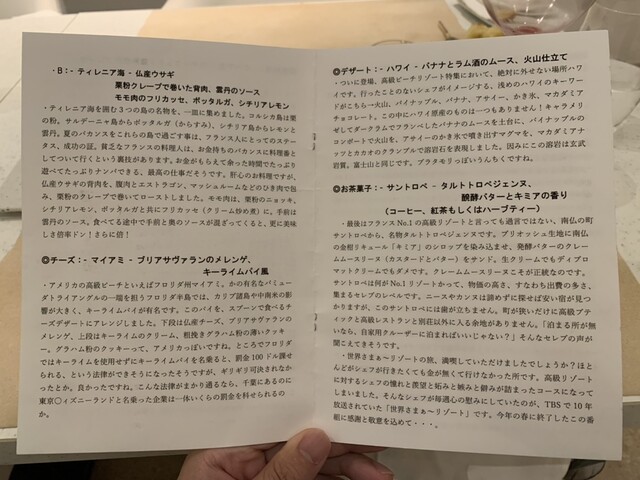 ・B：- ティレニア海 - 仏産ウサギ
栗粉クレープで巻いた背肉、雲丹のソース
モモ肉のフリカッセ、ボッタルガ、シチリアレモン
・ティレニア海を囲む３つの島の名物を、一皿に集めました。コルシカ島は栗
の粉。サルデーニャ島からボッタルガ（からすみ）、シチリア島からレモンと
雲丹。夏のバカンスをこれらの島で過ごす事は、フランス人にとってのステー
タス、成功の証。貧乏なフランスの料理人は、お金持ちのバカンスに料理番と
してついて行くという裏技があります。お金がもらえて余った時間でたっぷり
遊べてたっぷりナンパできる、最高の仕事だそうです。肝心のお料理ですが、
仏産ウサギの背肉を、腹肉とエストラゴン、マッシュルームなどのひき肉で包
み、栗粉のクレープで巻いてローストしました。モモ肉は、栗粉のニョッキ、
シチリアレモン、ボッタルガと共にフリカッセ（クリーム炒め煮）に。手前は
雲丹のソース、食べてる途中で手前と奥のソースが混ざってくると、更に美味
しさ倍率ドン！さらに倍！
◎チーズ：- マイアミ - ブリアサヴァランのメレンゲ、
キーライムパイ風
・アメリカの高級ビーチといえばフロリダ州マイアミ。かの有名なバミュー
ダトライアングルの一端を担うフロリダ半島では、カリブ諸島や中南米の影
響が大きく、キーライムパイが有名です。このパイを、スプーンで食べるチ
ーズデザートにアレンジしました。下段は仏産チーズ、ブリアサヴァランの
メレンゲ、上段はキーライムのクリーム、粗挽きグラハム粉の薄いクッキ
ー。グラハム粉のクッキーって、アメリカっぽいですね。ところでフロリダ
ではキーライムを使用せずにキーライムパイを名乗ると、罰金 100 ドル課せ
られる、という法律ができそうになったそうですが、ギリギリ可決されなか
ったとか。良かったですね。こんな法律がまかり通るなら、千葉にあるのに
東京〇ィズニーランドと名乗った企業は一体いくらの罰金を科せられるの
か。
◎デザート：- ハワイ - バナナとラム酒のムース、火山仕立て
・ついに登場、高級ビーチリゾート特集において、絶対に外せない場所ハワ
イです。行ったことのないシェフがイメージする、浅めのハワイのキーワー
ドがこちら→火山、パイナップル、バナナ、アサイー、かき氷、マカダミア
チョコレート。この中にハワイ原産のものは…一つもありません！キャラメリ
ゼしてダークラムでフランベしたバナナのムースを土台に、パイナップルの
コンポートで火山を、アサイーのかき氷で噴き出すマグマを、マカダミアナ
ッツとカカオのクランブルで溶岩石を表現しました。因みにこの溶岩は玄武
岩質。富士山と同じです。ブラタモリっぽいうんちくですね。
◎お茶菓子：- サントロペ - タルトトロペジェンヌ、
醗酵バターとキミアの香り
（コーヒー、紅茶もしくはハーブティー）
・最後はフランス No.1 の高級リゾートと言っても過言ではない、南仏の町
サントロペから、名物タルトトロペジェンヌです。ブリオッシュ生地に南仏
の金柑リキュール「キミア」のシロップを染み込ませ、発酵バターのクレー
ムムースリーヌ（カスタードとバター）をサンド。生クリームでもディプロ
マットクリームでもダメです。クレームムースリーヌこそが正統なのです。
サントロペは何が No.1 リゾートかって、物価の高さ、すなわち出費の多さ、
集まるセレブのレベルです。ニースやカンヌは諦めずに探せば安い宿が見つ
かりますが、このサントロペでは歯が立ちません。町が狭いだけに高級ブテ
ィックと高級レストランと別荘以外に入る余地がありません。「泊まる所が無
いなら、自家用クルーザーに泊まればいいじゃない？」そんなセレブの声が
聞こえてきそうです。
・世界さまぁ～リゾートの旅、満喫していただけましたでしょうか？ほと
んどがシェフが行きたくても金が無くて行けなかった所です。高級リゾート
に対するシェフの憧れと羨望と妬みと嫉みと僻みが詰まったコースになって
しまいました。そんなシェフが毎週心の慰みにしていたのが、TBS で 10 年
放送されていた「世界さまぁ～リゾート」です。今年の春に終了したこの番
組に感謝と敬意を込めて・・・。